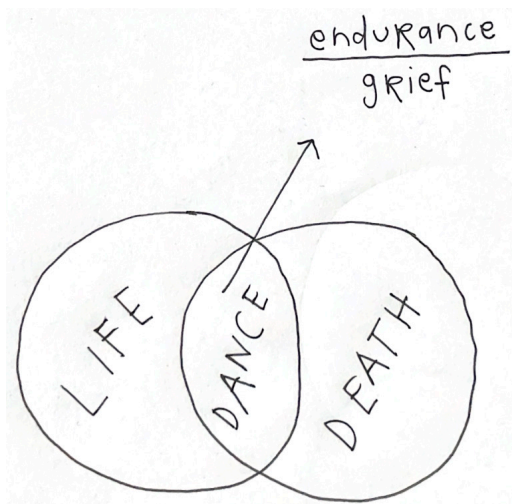 enduRance
gRief
LIFE
DANCE
DEATH